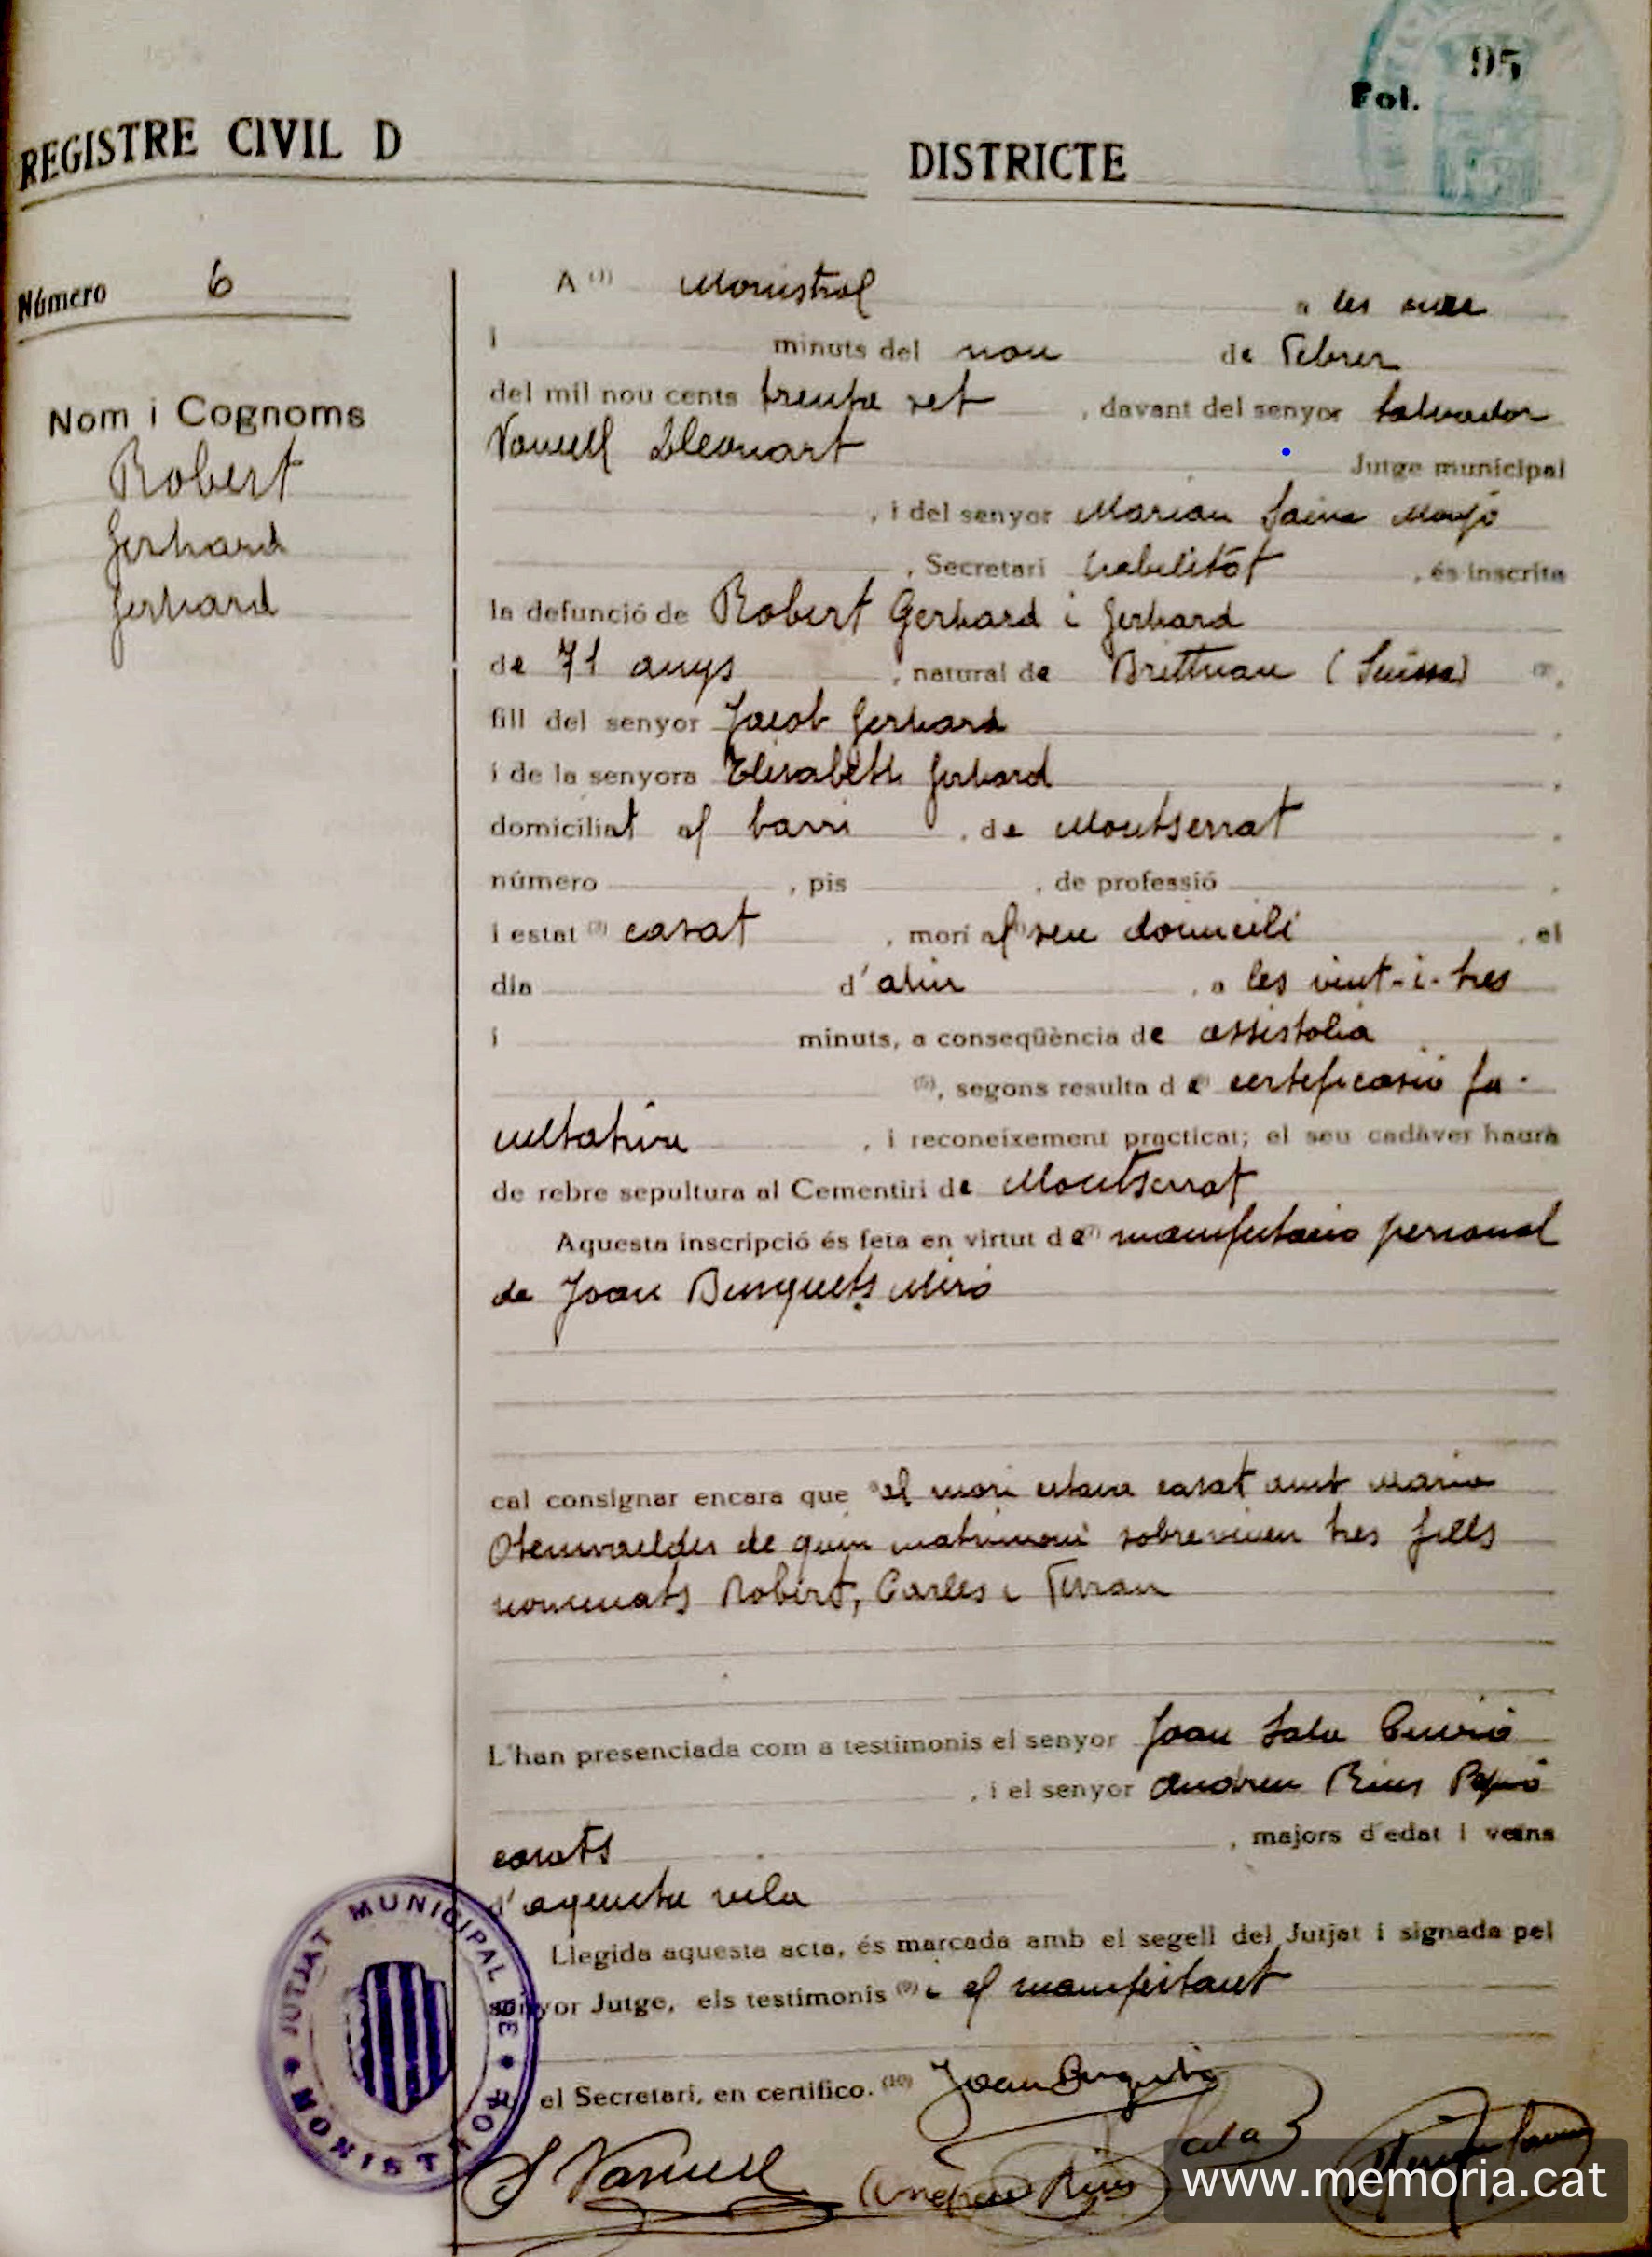 95
Fol.
REGISTRE CIVIL D
DISTRICTE
Número 6
Nom i Cognoms
Robert
Gerhard
Gerhard
A (1) Monistrol a les onze
i minuts del nou de Febrer
del mil nou cents trenta set , davant del senyor Salvador
Vanuell Lleonart Jutge municipal
, i del senyor Marian
, Secretari habilitat , és inscrita
la defunció de Robert Gerhard i Gerhard
de 71 anys , natural de Brittnau (Suïssa)
fill del senyor Jacob Gerhard ,
i de la senyora Elisabeth Gerhard ,
domiciliat al barri , de Montserrat .
número , pis , de professió ,
i estat (3) casat , morí al seu domicili , el
dia d'ahir , a les vint-i-tres
i minuts, a conseqüència de assistolia
(5), segons resulta de certificació fa-
cultativa , i reconeixement practicat; el seu cadàver haurà
de rebre sepultura al Cementiri de Montserrat
Aquesta inscripció és feta en virtut de (7) manifestació personal
de Joan Busquets Miró
cal consignar encara que el morí estava casat amb Maria
de quin matrimoni sobreviuen tres fills
nomenats Robert, Carles i Ferran
L'han presenciada com a testimonis el senyor Joan Sala
, i el senyor Andreu Rius
casats , majors d'edat i veïns
d'aquesta vila
Llegida aquesta acta, és marcada amb el segell del Jutjat i signada pel
senyor Jutge, els testimonis (9) i el manifestant
el Secretari, en certifico. (10) Joan Busquets
JUTJAT MUNICIPAL DE MONISTROL
S Vanuell Andreu Rius Sala
www.memoria.cat